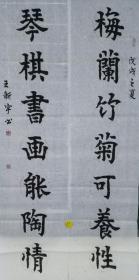 梅蘭竹菊可養性
戊戌之夏
琴棋書画能陶情
王新宇书